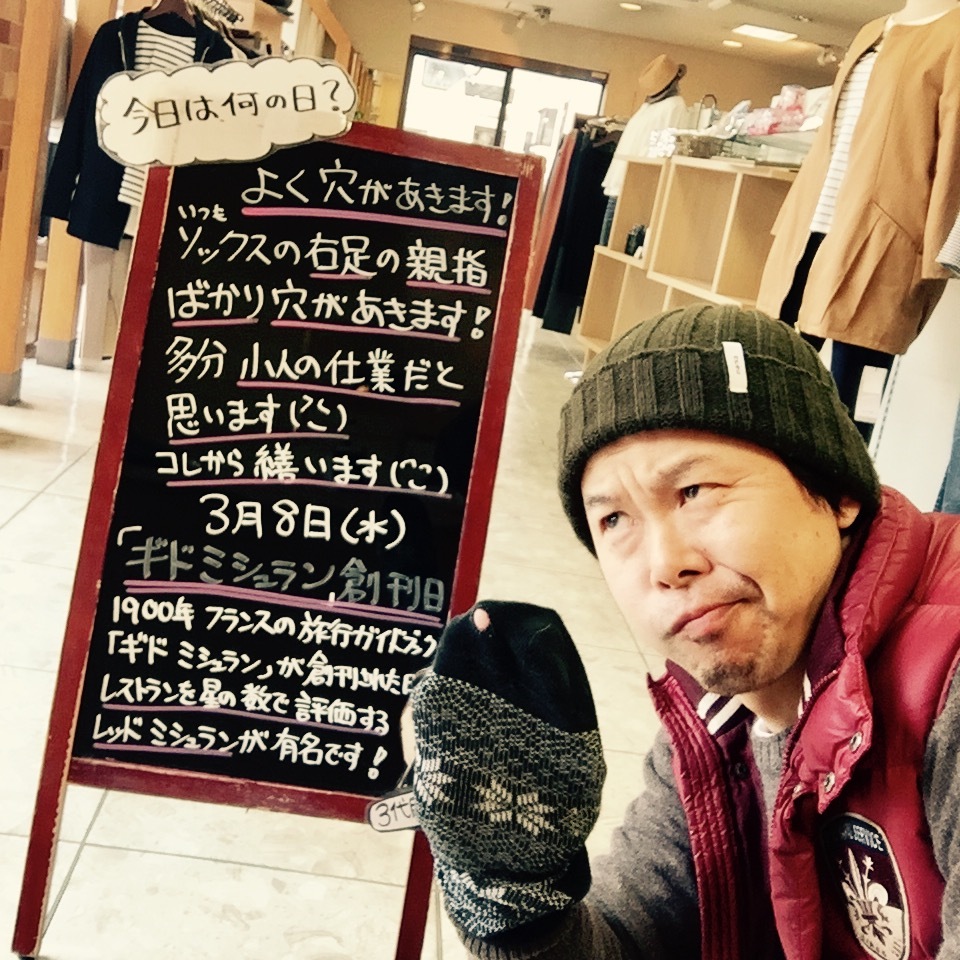 今日は何の日?
よく穴があきます!
いつも
ソックスの右足の親指
ばかり穴があきます!
多分 小人の仕業だと
思います
コレから繕います
3月8日(水)
「ギド ミシュラン」創刊日
1900年 フランスの旅行ガイドブック
「ギド ミシュラン」が創刊された日
レストランを星の数で評価する
レッド ミシュランが有名です!
3代
SERVICE